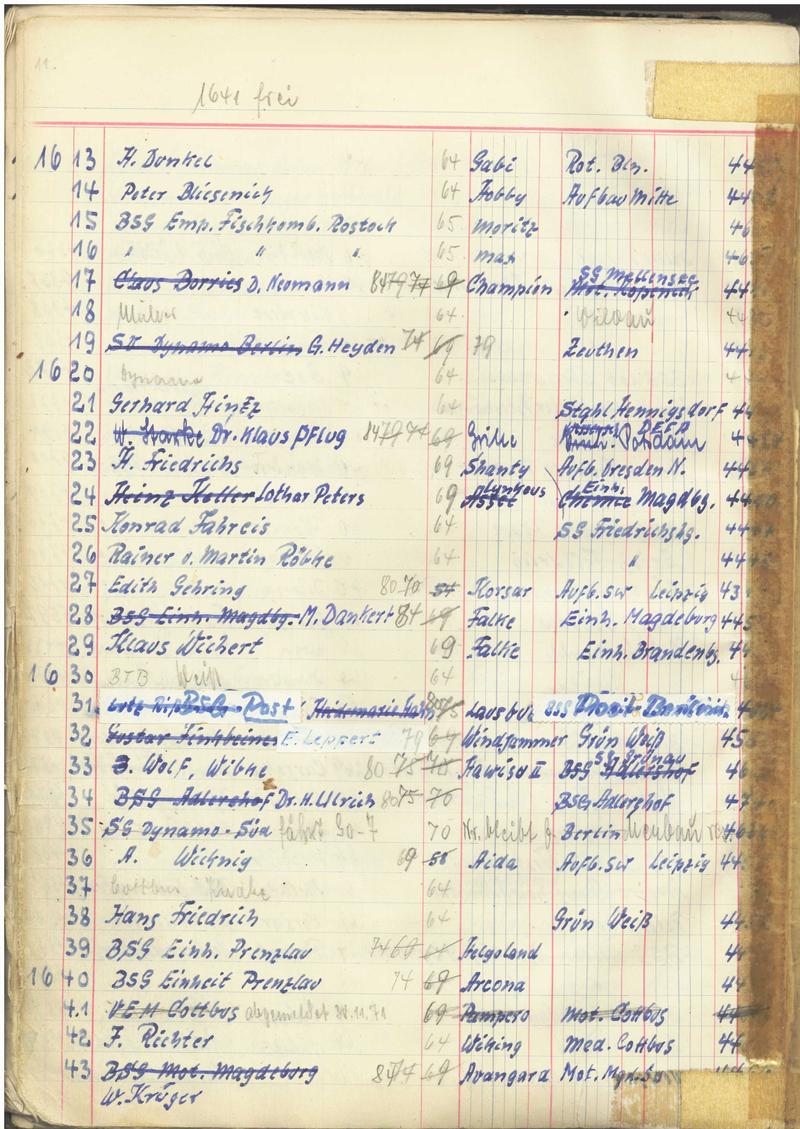 11.
1641 frei
16 13 H. Dunkel 64 Gabi Rot. Bln. 44
14 Peter Bliesenich 64 Hobby Aufbau Mitte 44
15 BSG Emp. Fischkomb. Rostock 65 moritz 46
16 " " " 65 max 46
SG Mellensee
17 Claus Borries D. Neumann 847974 69 Champion Mot. Köpenick 44
18 64 Wildau 44
19 SV Dynamo Berlin G. Heyden 74 69 79 Zeuthen 44
16 20 Dynamo 64 4
21 Gerhard Hintz 64 Stahl Hennigsdorf 44
DEFA
22 W. Starke Dr. Klaus Pflug 847974 69 Potsdam 4
23 H. Friedrichs 69 Shanty Aufb. Dresden N. 44
Lynkeus Einh.
24 Heinz Koller Lothar Peters 69 Assel Chemie Magdbg. 44
25 Konrad Fahreis 64 SG Friedrichshg. 44
26 Rainer u. Martin Röbke 64 " 44
27 Edith Gehring 80 70 54 Korsar Aufb. SW Leipzig 43
28 BSG Einh. Magdbg. M. Dankert 84 69 Falke Einh. Magdeburg 445
29 Klaus Wichert 69 Falke Einh. Brandenbg. 44
16 30 BTB Weiß 64
31 BSG Post Heidemarie Lausbub BSG Post Berlin 4
32 Gustav Finkbeiner E. Leppert 79 64 Windjammer Grün Weiß 45
Grünau
33 B. Wolf, Wibke 80 75 70 Hawisa II BSG Adlershof 46
34 BSG Adlershof Dr. H. Ulrich 80 75 70 BSG Adlershof 47
35 SG Dynamo-Süd fährt 30-7 70 Nr. bleibt f. Berlin Neubau 46
36 A. Wichnig 69 58 Aida Aufb. SW Leipzig 44
37 Cottbus 64
38 Hans Friedrich 64 Grün Weiß 44
39 BSG Einh. Prenzlau 74 69 64 Helgoland 44
16 40 BSG Einheit Prenzlau 74 69 Arcona 44
41 VEM Cottbus abgemeldet 71 69 Pampero Mot. Cottbus 44
42 F. Richter 64 Wiking Med. Cottbus 44
43 BSG Mot. Magdeburg 84 74 69 Avangard Mot.
W. Krüger